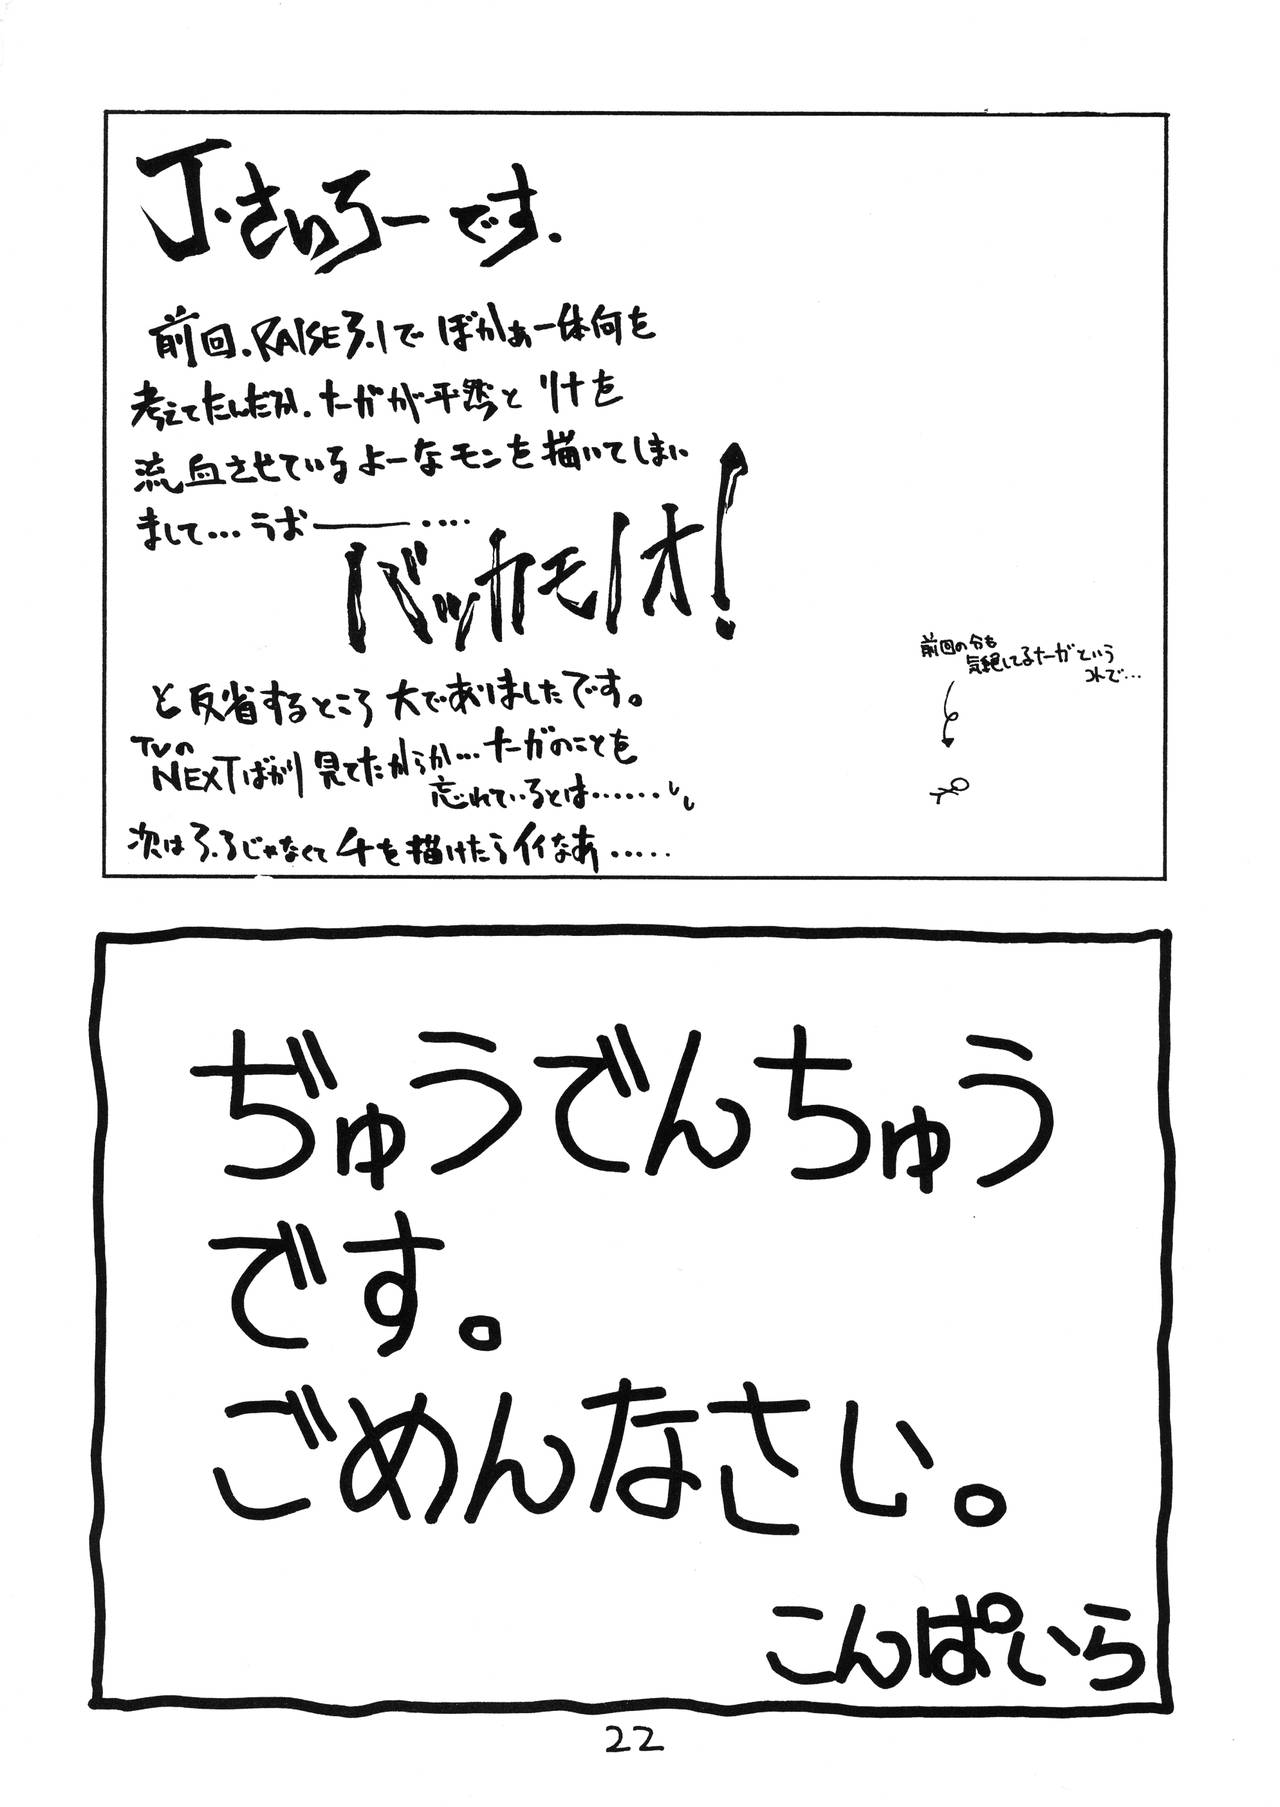 J・さいろーです.
前回.RAISE3.1で ぼかぁ一体何を
考えてたんだか.ナーガが平然と リナを
流血させているよーなモンを描いてしまい
まして...うおー....
バッカモノオ!
と反省するところ大でありましたです。
TVの
NEXTばかり見てたからか...ナーガのことを
忘れているとは......
次は3.3じゃなくて4を描けたらイイなあ.....
前回の分も
気絶してるナーガという
コトで...
ぢゅうでんちゅう
です。
ごめんなさい。
こんぱいら
22